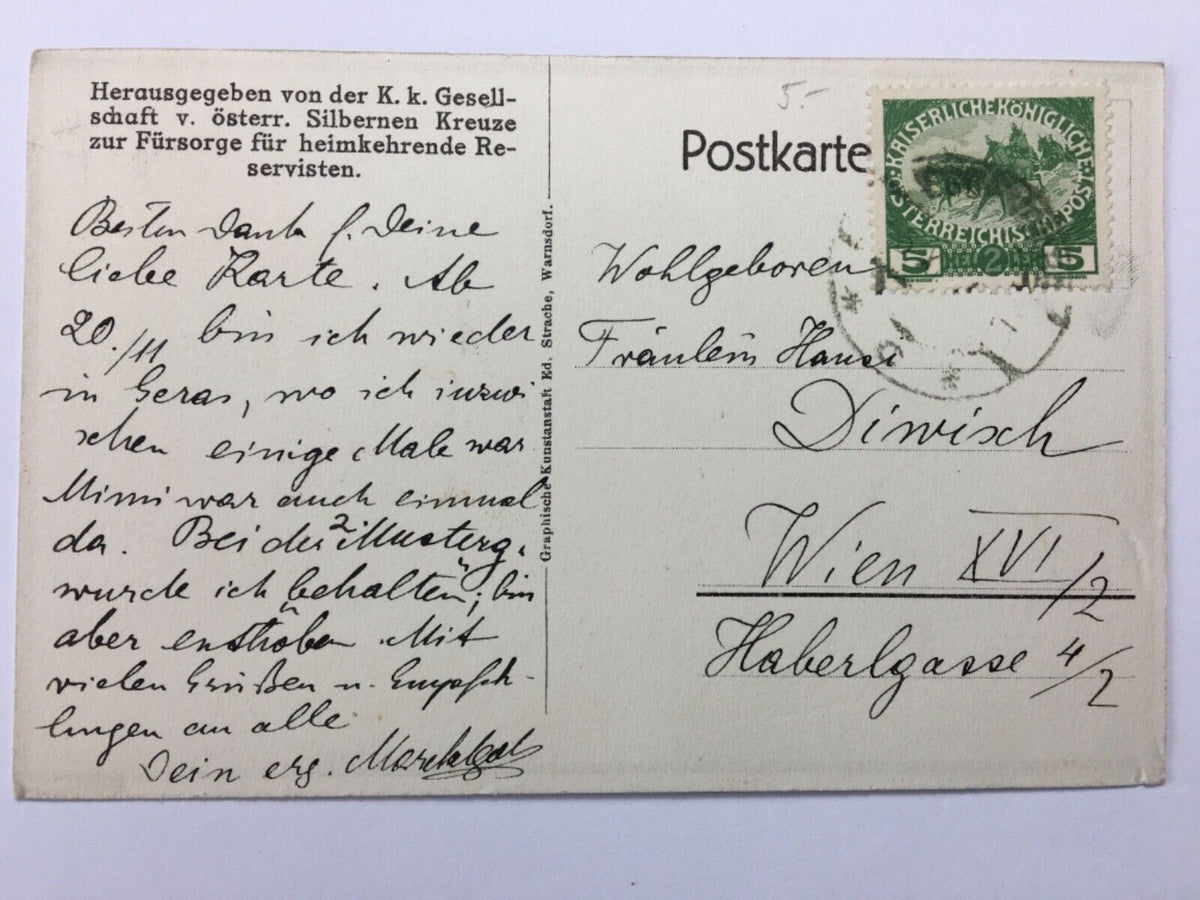 Herausgegeben von der K. k. Gesell-
schaft v. österr. Silbernen Kreuze
zur Fürsorge für heimkehrende Re-
servisten.
Besten Dank f. Deine
liebe Karte. Ab
20./11 bin ich wieder
in Geras, wo ich inzwi
schen einige Male war
Mimi war auch einmal
da. Bei der 2 Musterg.
wurde ich „behalten“; bin
aber enthoben. Mit
vielen Grüßen u. Empfeh-
lungen an alle
Dein erg.
Graphische Kunstanstalt Ed. Strache, Warnsdorf.
5.-
Postkarte
KAISERLICHE KÖNIGLICHE
ÖSTERREICHISCHE POST
5 HELLER 5
2
Wohlgeboren
Fräulein Hansi
Diwisch
Wien XVI/2
Haberlgasse 4/2